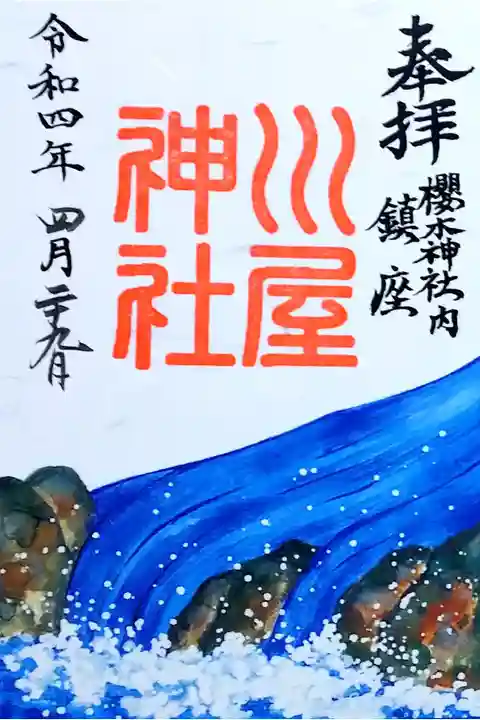 奉拝
櫻木神社内
鎮座
川屋
神社
令和四年 四月二十九日